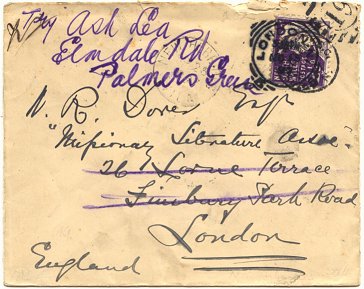 Try Ash Lea
Elmdale Rd
Palmers Green
LONDON
N. R. Dover Esqr
"Missionary Literature Assoc"
26 Lorne Terrace
Finsbury Park Road
London
England